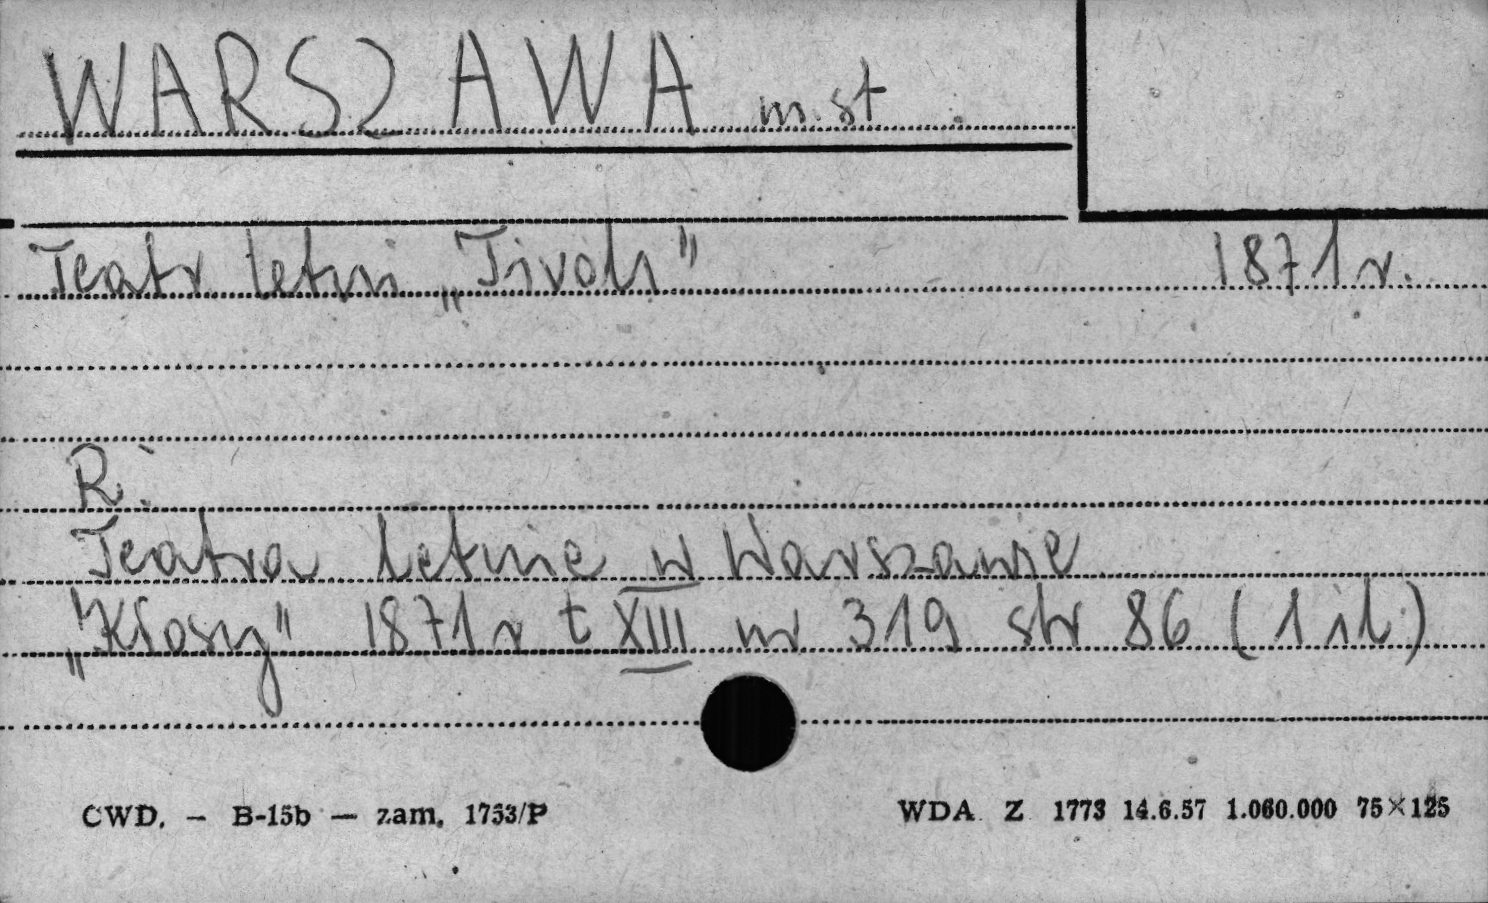 WARSZAWA m.st.
Teatr letni „Tivoli" 1871 r.
R:
Teatra letnie w Warszawie
„Kłosy" 1871 r t XIII nr 319 str 86 (1 il)
CWD. — B-15b — zam. 1753/P WDA Z 1773 14.6.57 1.060.000 75×125